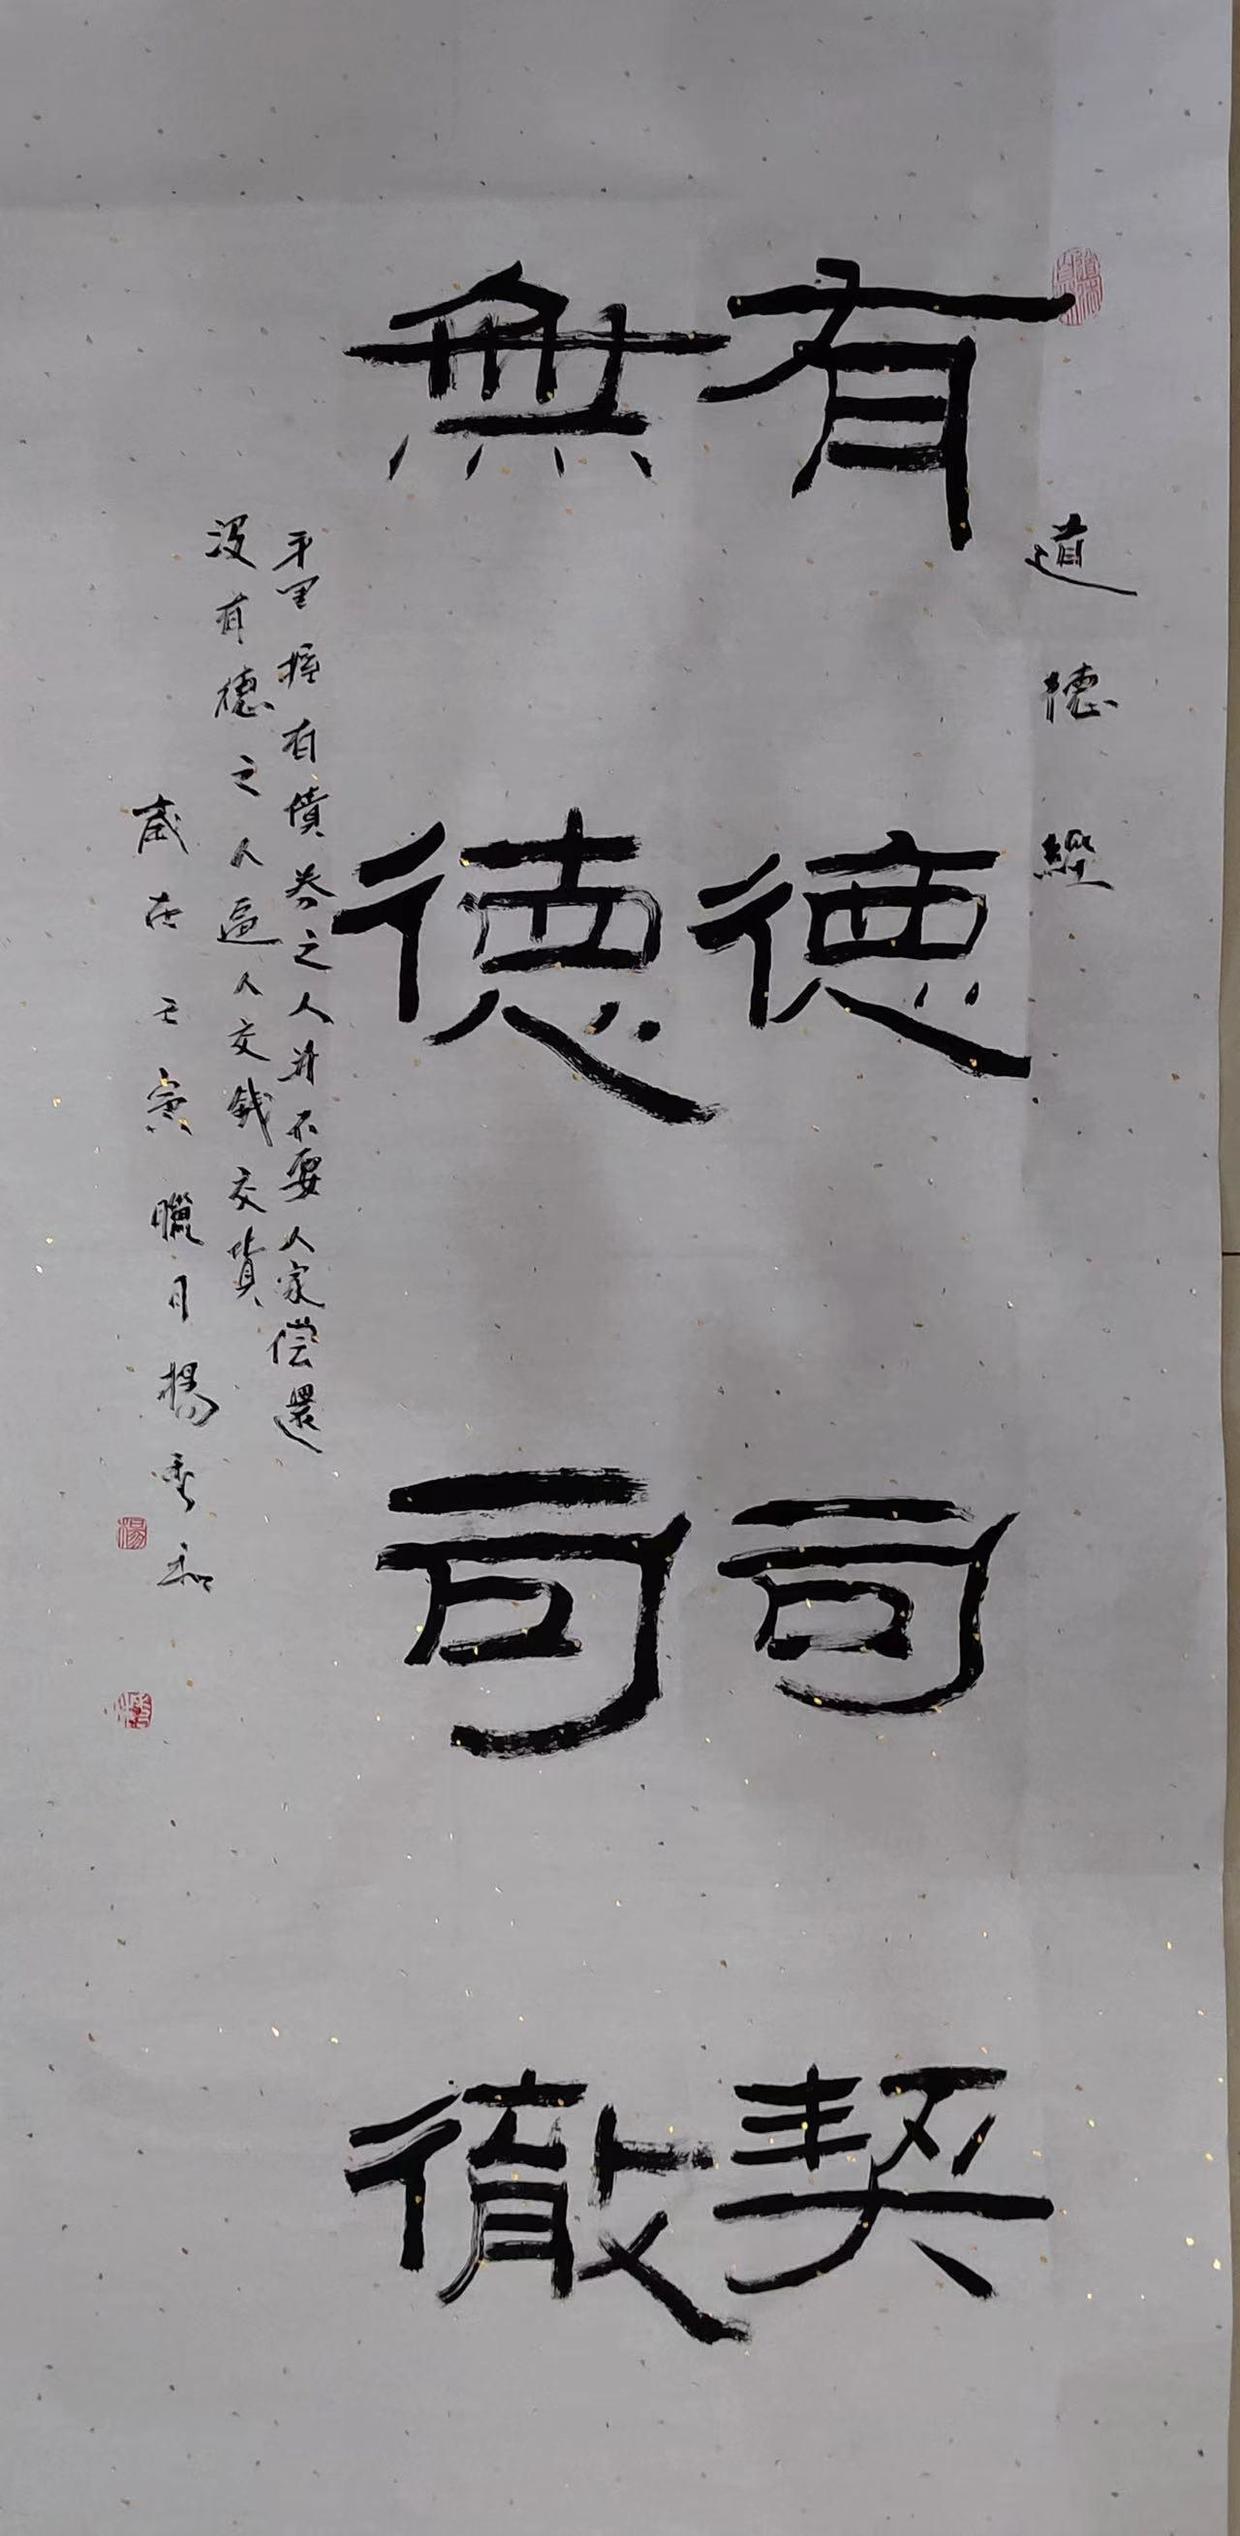 道德經
有德司契
無德司徹
手里握有債券之人并不要人家偿還
没有德之人逼人交錢交貨
歲在壬寅臘月楊秀和
楊